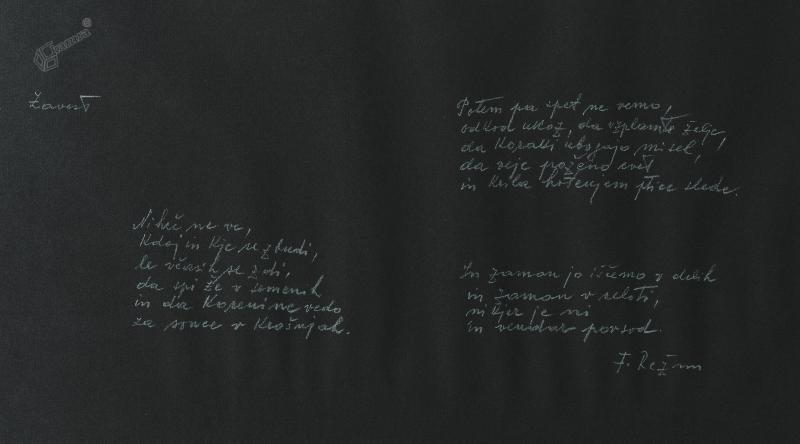 Zavest
Nihče ne ve,
kdaj in kje se zbudi,
le včasih se zdi,
da spi že v semenih
in da korenine vedo
za sonce v krošnjah.
Potem pa spet ne vemo,
odkod ukaz, da vzplamte želje,
da koraki ubogajo misel,
da veje poženo cvet
in krila hotenjem ptice slede.
In zaman jo iščemo v delih
in zaman v celoti,
nikjer je ni
in vendar povsod.
F. Režun